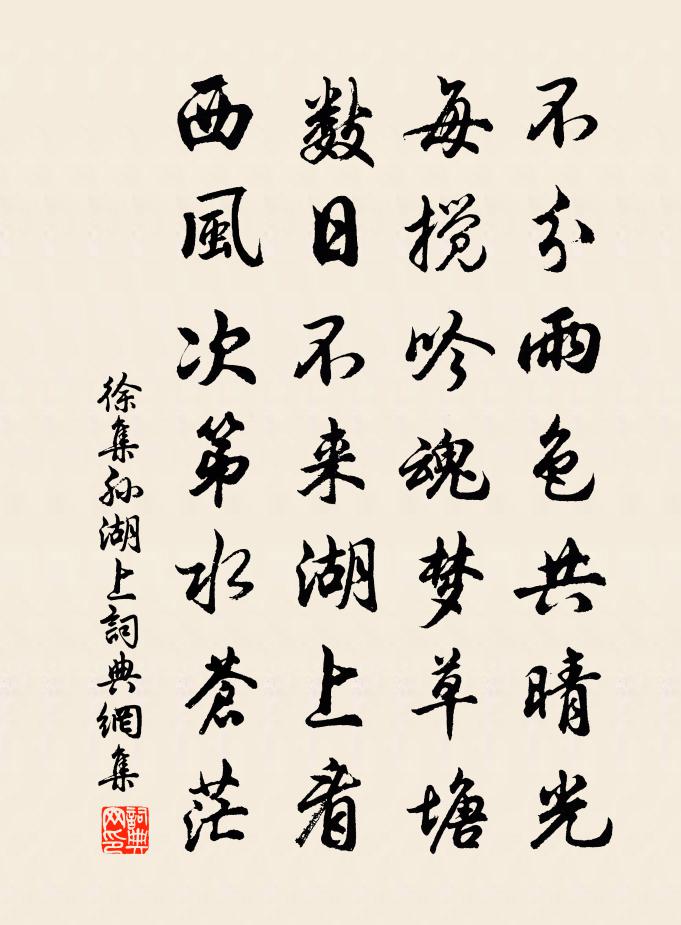 不分雨色共晴光
每搅吟魂梦草塘
数日不来湖上看
西風次第水蒼茫
徐集孙湖上詞典網集
詞典
网印